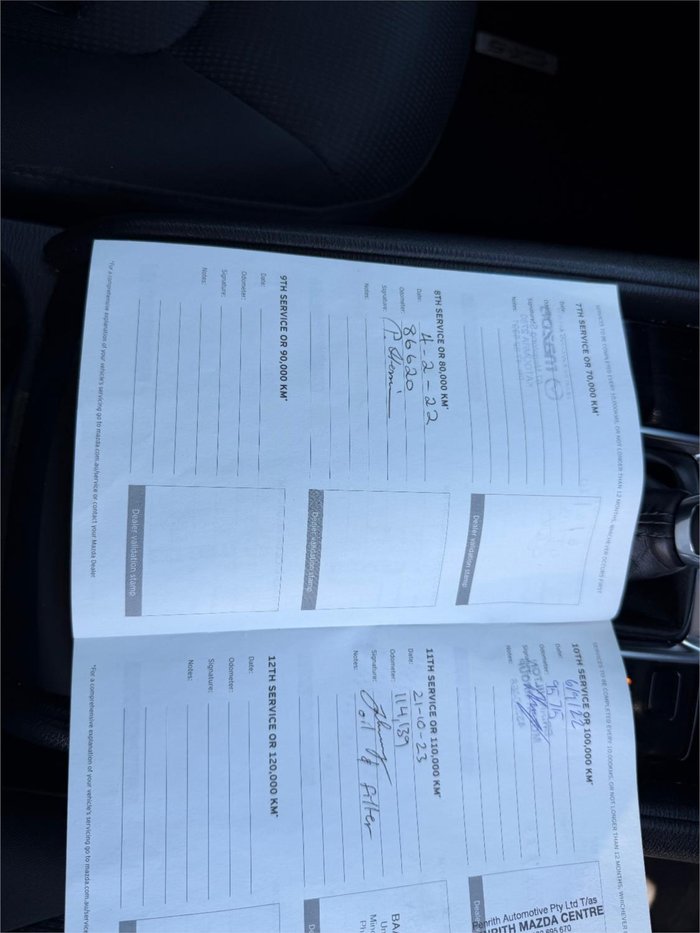 SERVICES TO BE COMPLETED EVERY 10,000KMS, OR NOT LONGER THAN 12 MONTHS, WHICHEVER OCCURS FIRST
7TH SERVICE OR 70,000 KM*
Date:
Signature:
Notes:
Dealer validation stamp
8TH SERVICE OR 80,000 KM*
Date: 4-2-22
Odometer: 86620
Signature:
Notes:
Dealer validation stamp
9TH SERVICE OR 90,000 KM*
Date:
Odometer:
Signature:
Notes:
Dealer validation stamp
*For a comprehensive explanation of your vehicle's servicing go to mazda.com.au/service or contact your Mazda Dealer
SERVICES TO BE COMPLETED EVERY 10,000KMS, OR NOT LONGER THAN 12 MONTHS, WHICHEVER
10TH SERVICE OR 100,000 KM*
Date:
Odometer:
Signature:
Notes:
Penrith Automotive Pty Ltd T/as
NRITH MAZDA CENTRE
895 670
11TH SERVICE OR 110,000 KM*
Date: 21-10-23
Odometer: 114,139
Signature:
Notes: oil & filter
12TH SERVICE OR 120,000 KM*
Date:
Odometer:
Signature:
Notes:
*For a comprehensive explanation of your vehicle's servicing go to mazda.com.au/service